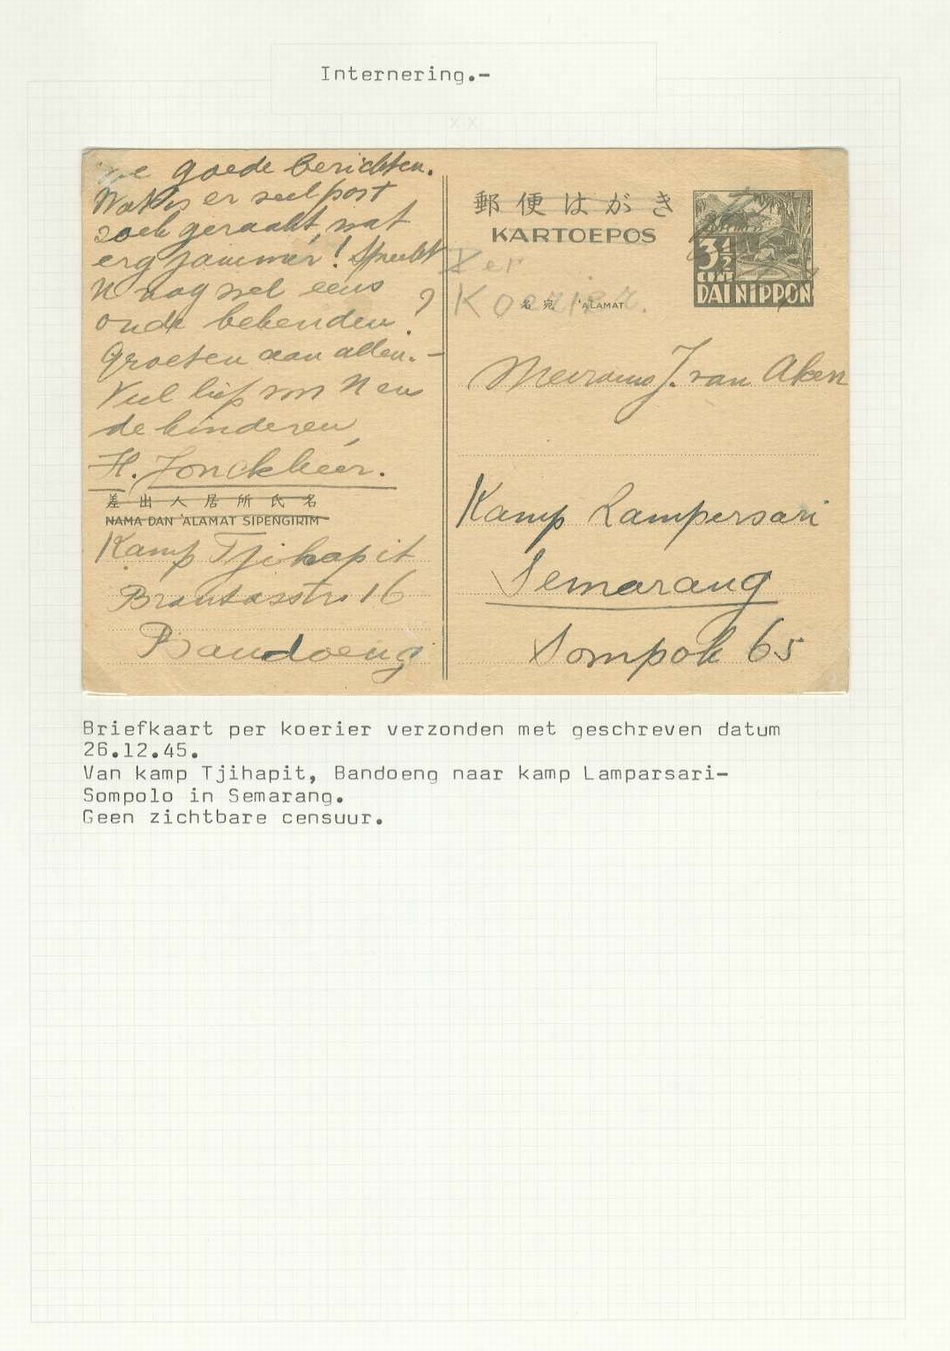 Internering.-
goede berichten.
Wat is er veel post
zoek geraakt, wat
erg jammer! Spreekt
U nog wel eens
oude bekenden?
Groeten aan allen.-
Veel liefs voor U en
de kinderen,
H. Jonckheer.
差出人居所氏名
NAMA DAN 'ALAMAT SIPENGIRIM
Kamp Tjihapit
Brantasstr. 16
Bandoeng
郵便はがき
KARTOEPOS
3½
CENT
DAI NIPPON
Per
Koerier.
名宛 'ALAMAT
Mevrouw J. van Aken
Kamp Lampersari
Semarang
Sompok 65
Briefkaart per koerier verzonden met geschreven datum
26.12.45.
Van kamp Tjihapit, Bandoeng naar kamp Lamparsari-
Sompolo in Semarang.
Geen zichtbare censuur.